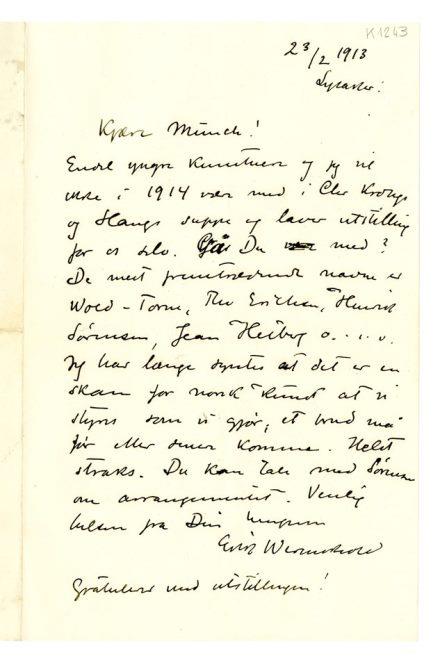 K1243
23/2 1913
Lysaker.
Kjære Munch!
Endel yngre kunstnere og jeg vil
ikke i 1914 være med i Chr Krohgs
og Haugs suppe og laver utstilling
for os selv. Går Du med?
De mest fremtrædende navne er
Wold-Torne, Thv Erichsen, Henrik
Sørensen, Jean Heiberg o. s. v.
Jeg har længe syntes at det er en
skam for norsk kunst at vi
styres som vi gjør; et brud må
før eller siden komme. Helst
straks. Du kan tale med Sørensen
om arrangementet. Venlig
hilsen fra Din
Erik Werenskiold
Gratulerer med utstillingen!